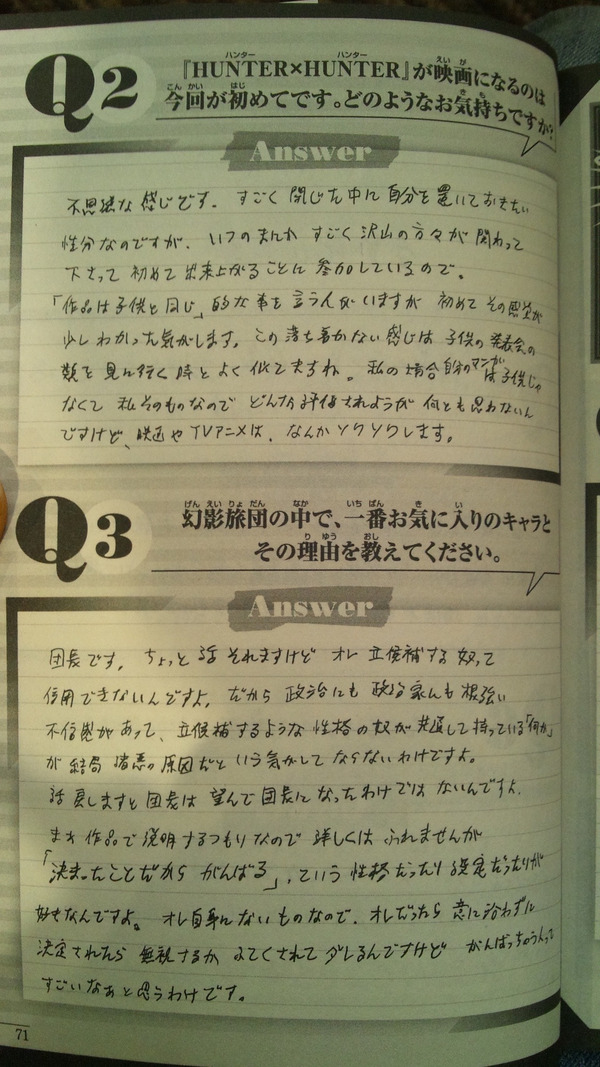 Q2
『HUNTER×HUNTER』が映画になるのは
今回が初めてです。どのようなお気持ちですか？
Answer
不思議な感じです。すごく閉じた中に自分を置いておきたい
性分なのですが、いつのまんか すごく沢山の方々が関わって
下さって 初めて出来上がることに参加しているので。
「作品は子供と同じ」的な事を言う人がいますが 初めてその感覚が
少しわかった気がします。この落ち着かない感じは 子供の発表会の
類を見に行く時とよく似てますね。私の場合自分のマンガは子供じゃ
なくて 私そのものなので どんな評価されようが 何とも思わないん
ですけど、映画やTVアニメは、なんかソワソワします。
Q3
幻影旅団の中で、一番お気に入りのキャラと
その理由を教えてください。
Answer
団長です。ちょっと話それますけど オレ 立候補する奴って
信用できないんですよ。だから 政治にも 政治家にも 根強い
不信感があって、立候補するような性格の奴が共通して持っている「何か」
が 結局 諸悪の原因だという気がしてならないわけですよ。
話戻しますと団長は 望んで団長になったわけではないんですよ。
まぁ 作品で説明するつもりなので 詳しくは ふれませんが
「決まったことだから がんばる」、ていう性格だったり 設定だったりが
好きなんですよ。オレ自身にないものなので。オレだったら 意に沿わずに
決定されたら 無視するか ふてくされて ダレるんですけど がんばっちゃう人って
すごいなぁと思うわけです。
71